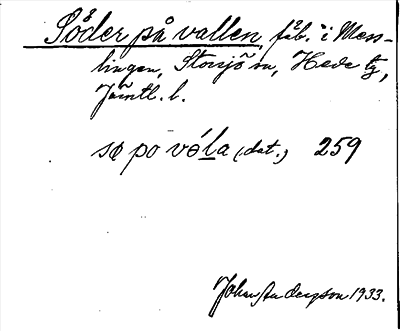 Söder på vallen, fäb. i Mess-
lingen, Storsjö sn, Hede tg,
Jämtl. l.
sø po vóla (dat.) 259
Johan Andersson 1933.